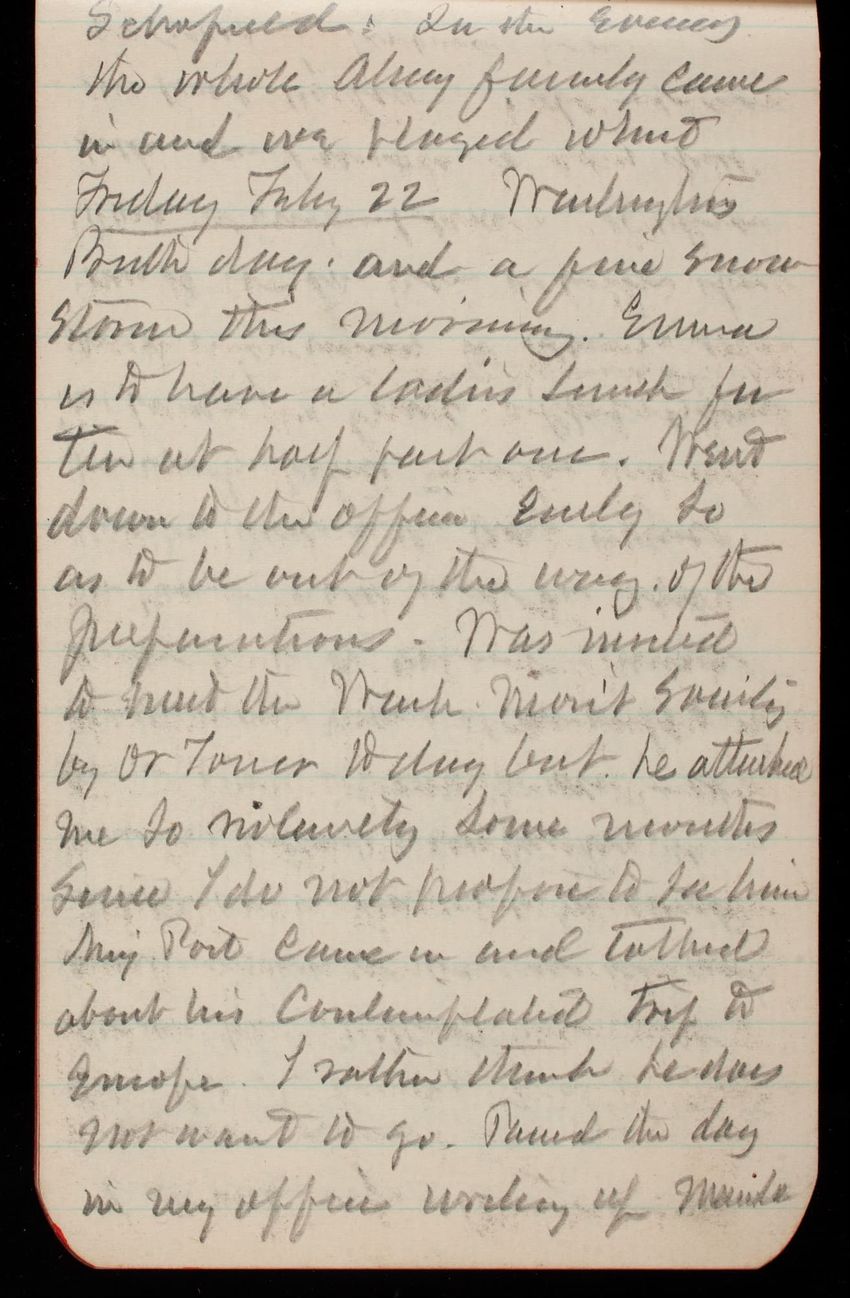 Schofield. In the Evening
the whole Alvey family came
in and we played whist
Friday Feby 22 Washingtons
Birth day. and a fine snow
storm this morning. Emma
is to have a ladies lunch for
ten at half past one. Went
down to the office Early so
as to be out of the way. of the
preparations - Was invited
to meet the Wash Mon't Society
by Dr Toner today but. he attacked
me so violently some months
since I do not propose to see him
Maj. Post came in and talked
about his Contemplated trip to
Europe. I rather think he does
not want to go. Passed the day
in my office working up